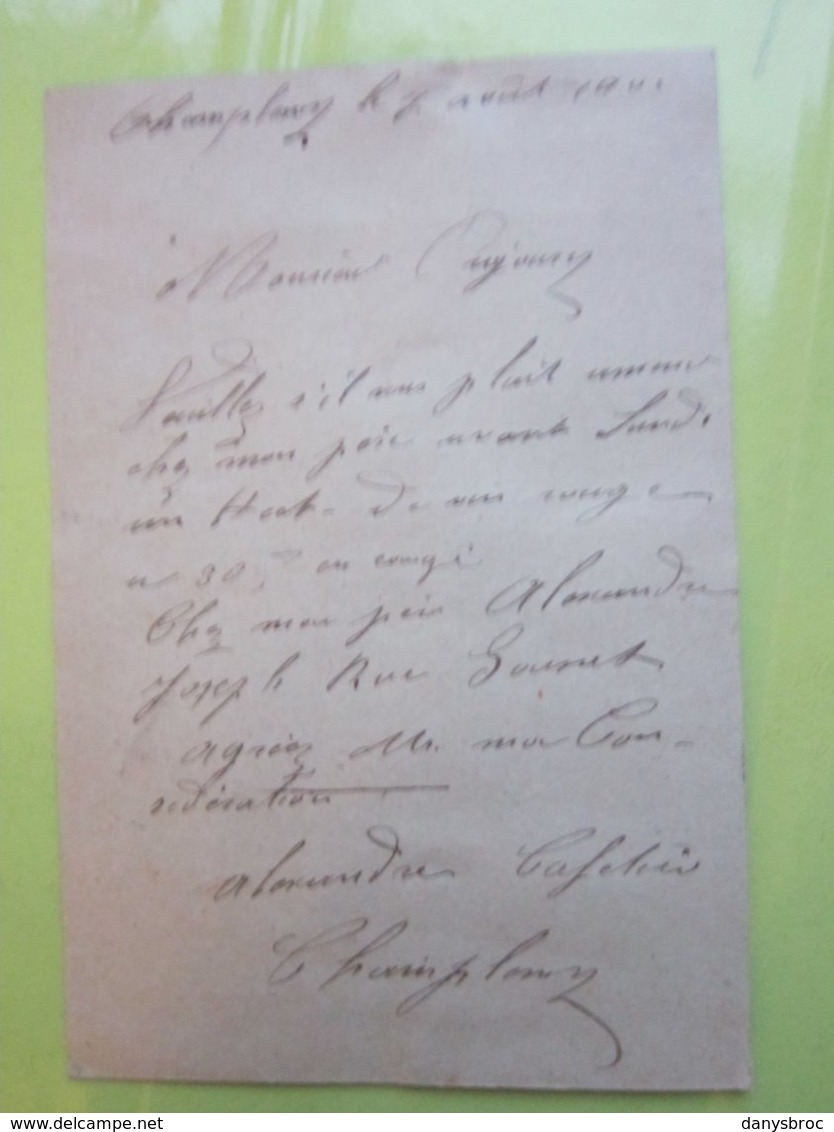 Champlany le 7 août 1901
à Monsieur
Veuillez s'il vous plait amener
chez mon père avant Lundi
un Hect. de vin rouge
a 30 f ou congé
Chez mon père Alexandre
Joseph Rue
agréez Mr. ma Con-
sidération
Alexandre Cafetier
Champlany
danysbroc